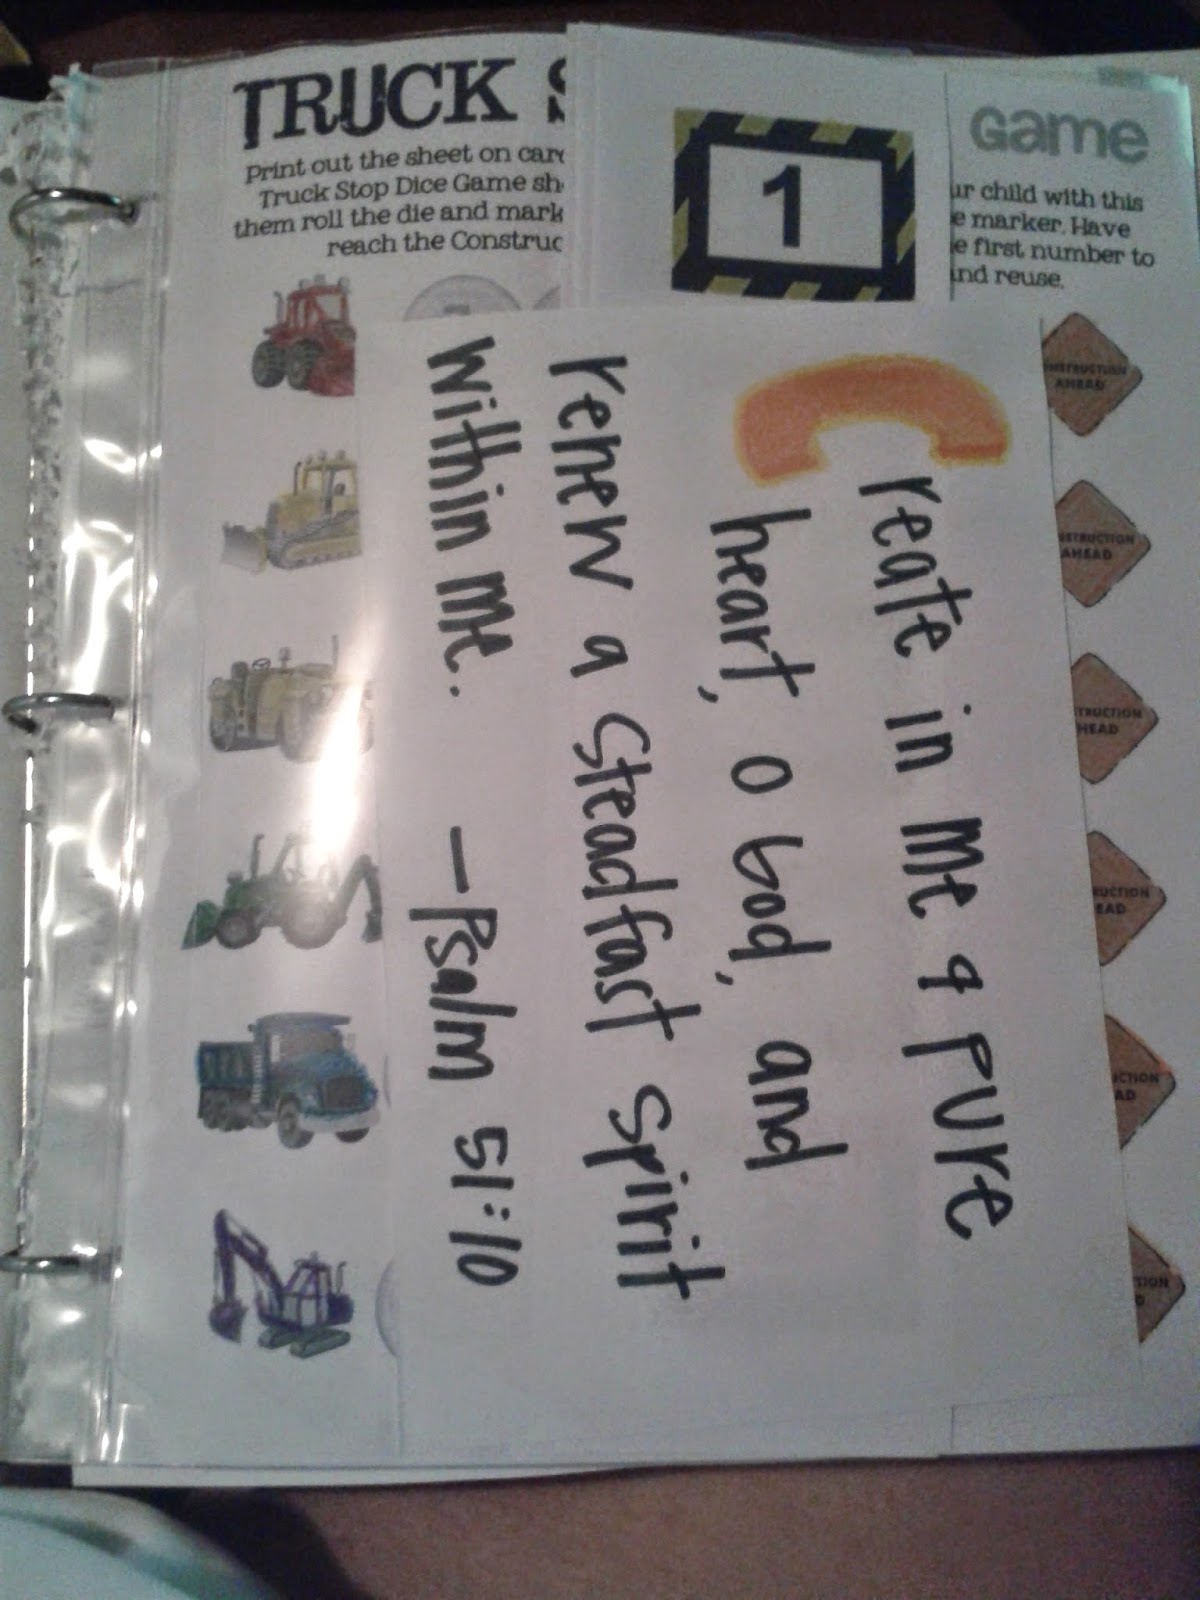 TRUCK
Game
Print out the sheet on
Truck Stop Dice Game
them roll the die and mark
reach the
ur child with this
e marker. Have
e first number to
and reuse.
1
Create in me a pure
heart, O God, and
renew a steadfast spirit
within me. —Psalm 51:10
NSTRUCTION
AHEAD
STRUCTION
AHEAD
TRUCTION
HEAD
RUCTION
EAD
CTION
AD
TION
D